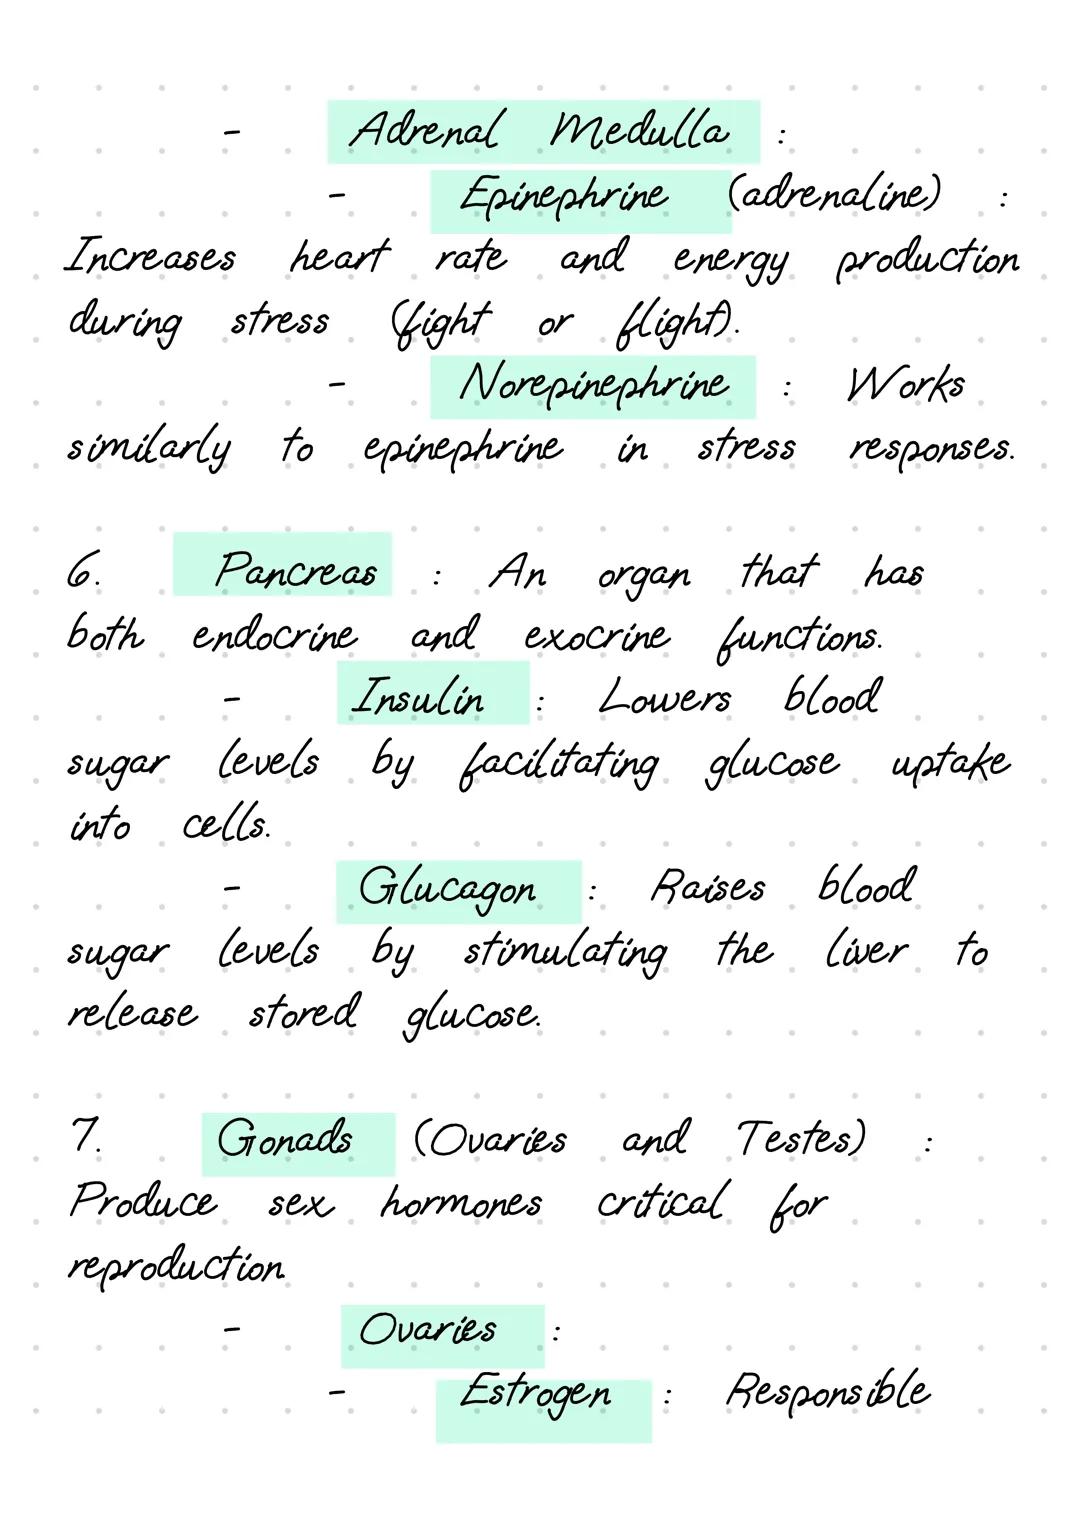 - Adrenal Medulla :
- Epinephrine (adrenaline) :
Increases heart rate and energy production
during stress (fight or flight).
- Norepinephrine : Works
similarly to epinephrine in stress responses.
6. Pancreas : An organ that has
both endocrine and exocrine functions.
- Insulin : Lowers blood
sugar levels by facilitating glucose uptake
into cells.
- Glucagon : Raises blood
sugar levels by stimulating the liver to
release stored glucose.
7. Gonads (Ovaries and Testes) :
Produce sex hormones critical for
reproduction
- Ovaries :
- Estrogen : Responsible